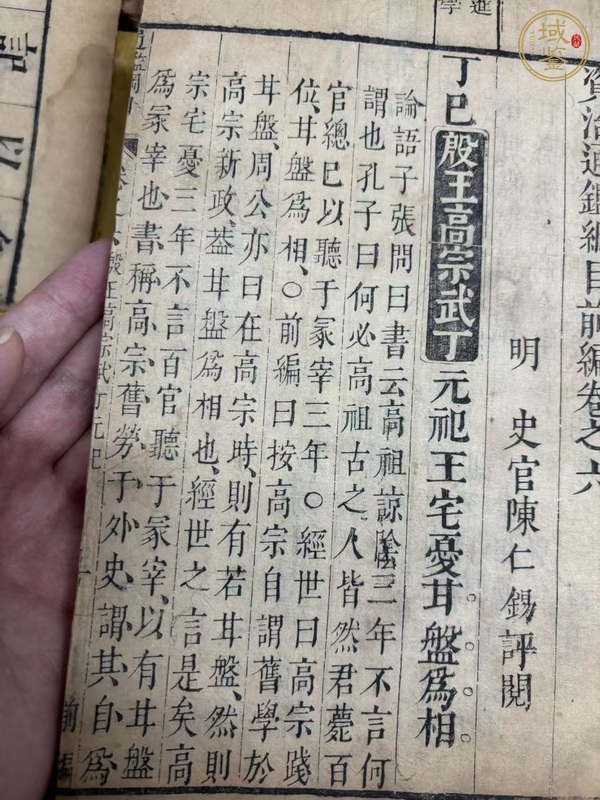 資治通鑑綱目前編卷之六
明 史官陳仁錫評閱
丁巳殷王高宗武丁元祀王宅憂甘盤爲相
論語子張問曰書云高祖諒陰三年不言何
謂也孔子曰何必高祖古之人皆然君薨百
官總已以聽于冢宰三年〇經世曰高宗踐
位甘盤爲相〇前編曰按高宗自謂舊學於
甘盤周公亦曰在高宗時則有若甘盤然則
高宗新政葢甘盤爲相也經世之言是矣高
宗宅憂三年不言百官聽于冢宰以有甘盤
爲冢宰也書稱高宗舊勞于外史謂其自爲
殷王高宗武丁元祀
前編
域鑒